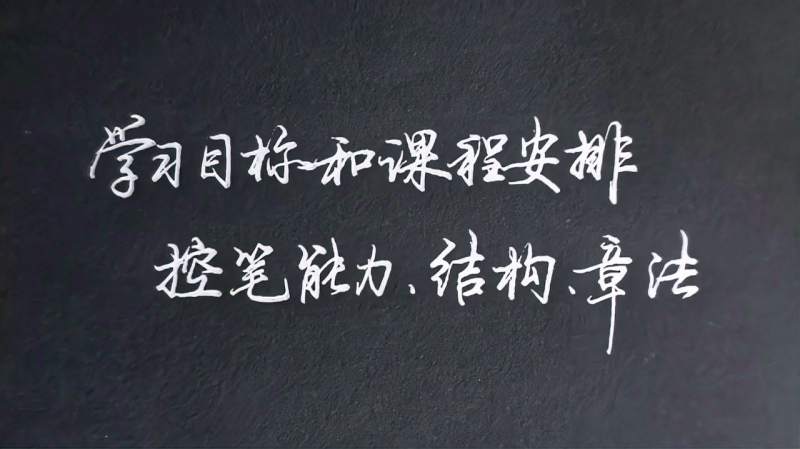 学习目标和课程安排
控笔能力、结构、章法